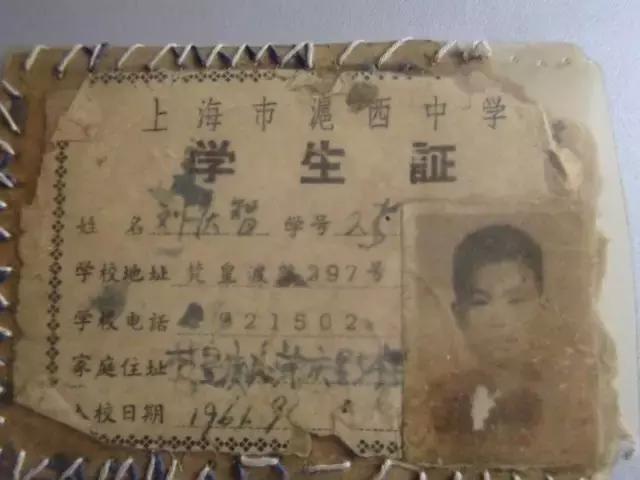 上海市滬西中学
学生証
姓名 刘 智 学号 25
学校地址 梵皇渡路397号
学校电话 921502
家庭住址
入校日期 1961.9